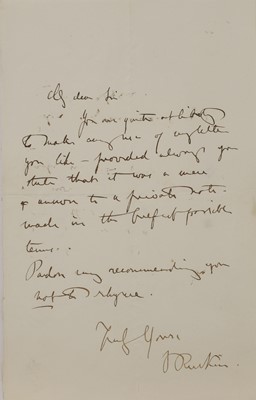 My dear Sir
You are quite at liberty
to make any use of my letter
you like – provided always you
state that it was a mere
answer to a private note.
made in the briefest possible
terms..
Pardon my recommending you
not to rhyme.
Truly Yours
J Ruskin.